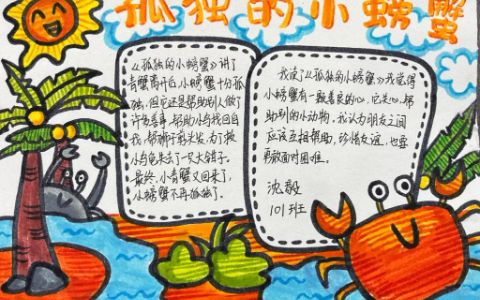 孤独的小螃蟹
《孤独的小螃蟹》讲了
青蟹离开后,小螃蟹十分孤
独。但它还是帮助别人做了
许多善事,帮助小乌龟回自
我,帮狮子剪头发,为了救
小乌龟失去了一只大钳子。
最终,小青蟹又回来了,
小螃蟹不再孤独了。
我读了《孤独的小螃蟹》我觉得
小螃蟹有一颗善良的心,它关心、帮
助别的小动物。我认为朋友之间
应该互相帮助,珍惜友谊,也要
勇敢面对困难。
沈毅
101班